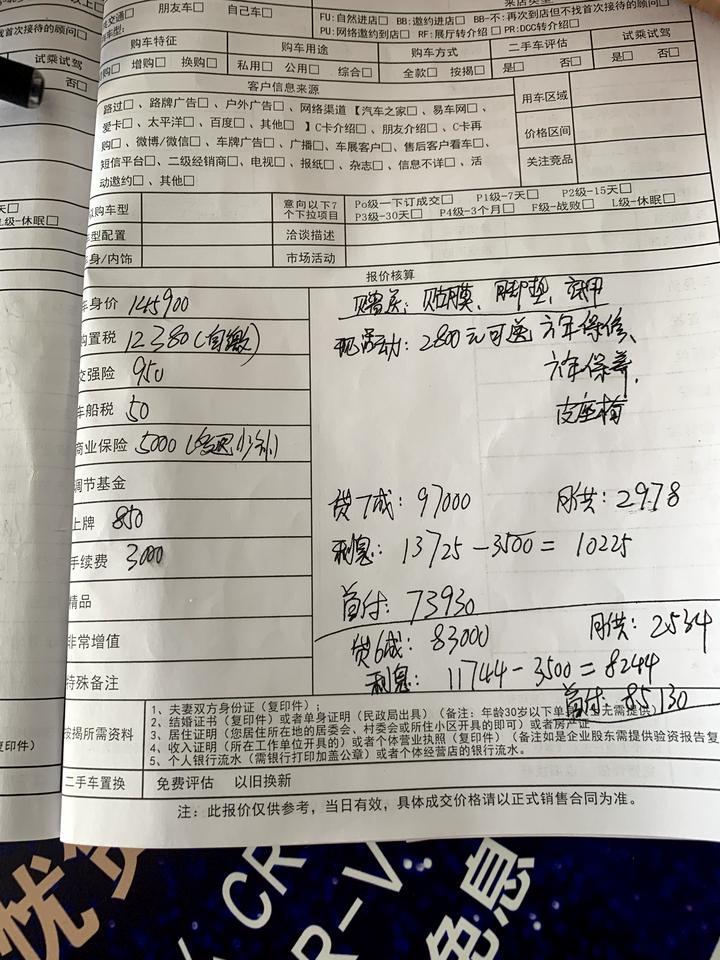 朋友车□ 自己车□
FU:自然进店□ BB:邀约进店□ BB-不:再次到店但不找首次接待的顾问□
PU:网络邀约到店□ RF:展厅转介绍□ PR:DCC转介绍□
购车特征 购车用途 购车方式 二手车评估 试乘试驾
购□ 增购□ 换购□ 私用□ 公用□ 综合□ 全款□ 按揭□ 是□ 否□ 是□ 否□
客户信息来源
路过□、路牌广告□、户外广告□、网络渠道【汽车之家□、易车网□、
爱卡□、太平洋□、百度□、其他□ 】C卡介绍□、朋友介绍□、C卡再
购□、微博/微信□、车牌广告□、广播□、车展客户□、售后客户看车□、
短信平台□、二级经销商□、电视□、报纸□、杂志□、信息不详□、活
动邀约□、其他□
用车区域
价格区间
关注竞品
购车型 意向以下7个下拉项目 Po级一下订成交□ P1级-7天□ P2级-15天□
P3级-30天□ P4级-3个月□ F级-战败□ L级-休眠□
型配置 洽谈描述
身/内饰 市场活动
报价核算
车身价 145900
购置税 12380(自缴)
交强险 950
车船税 50
商业保险 5000
调节基金
上牌 850
手续费 3000
精品
非常增值
特殊备注
贴膜、脚垫、
2800元可送 六年保修、
六年保养,
皮座椅
贷7成: 97000 月供: 2978
利息: 13725-3500=10225
首付: 73930
贷6成: 83000 月供: 2534
利息: 11744-3500=8244
首付: 85130
按揭所需资料
1、夫妻双方身份证(复印件);
2、结婚证书(复印件)或者单身证明(民政局出具)(备注:年龄30岁以下单身
3、居住证明(您居住所在地的居委会、村委会或所住小区开具的即可)或者房产证
4、收入证明(所在工作单位开具的)或者个体营业执照(复印件)(备注如是企业股东需提供验资报告复
5、个人银行流水(需银行打印加盖公章)或者个体经营店的银行流水。
二手车置换 免费评估 以旧换新
注:此报价仅供参考,当日有效,具体成交价格请以正式销售合同为准。
试乘试驾
否□
L级-休眠□
复印件)
忧
CR
R-V:
免息